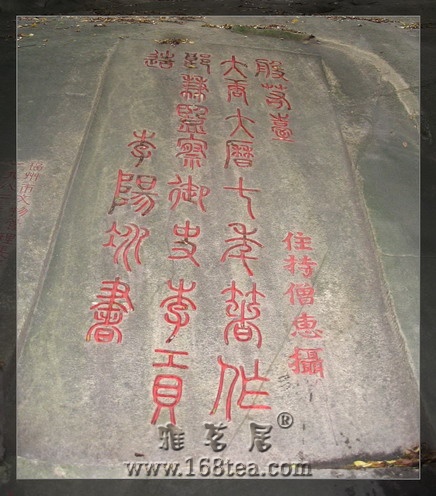 般若臺
住持僧惠攝
大唐大曆七年著作
郎兼監察御史李貢
造
李陽冰書
雅茗居®
www.168tea.com